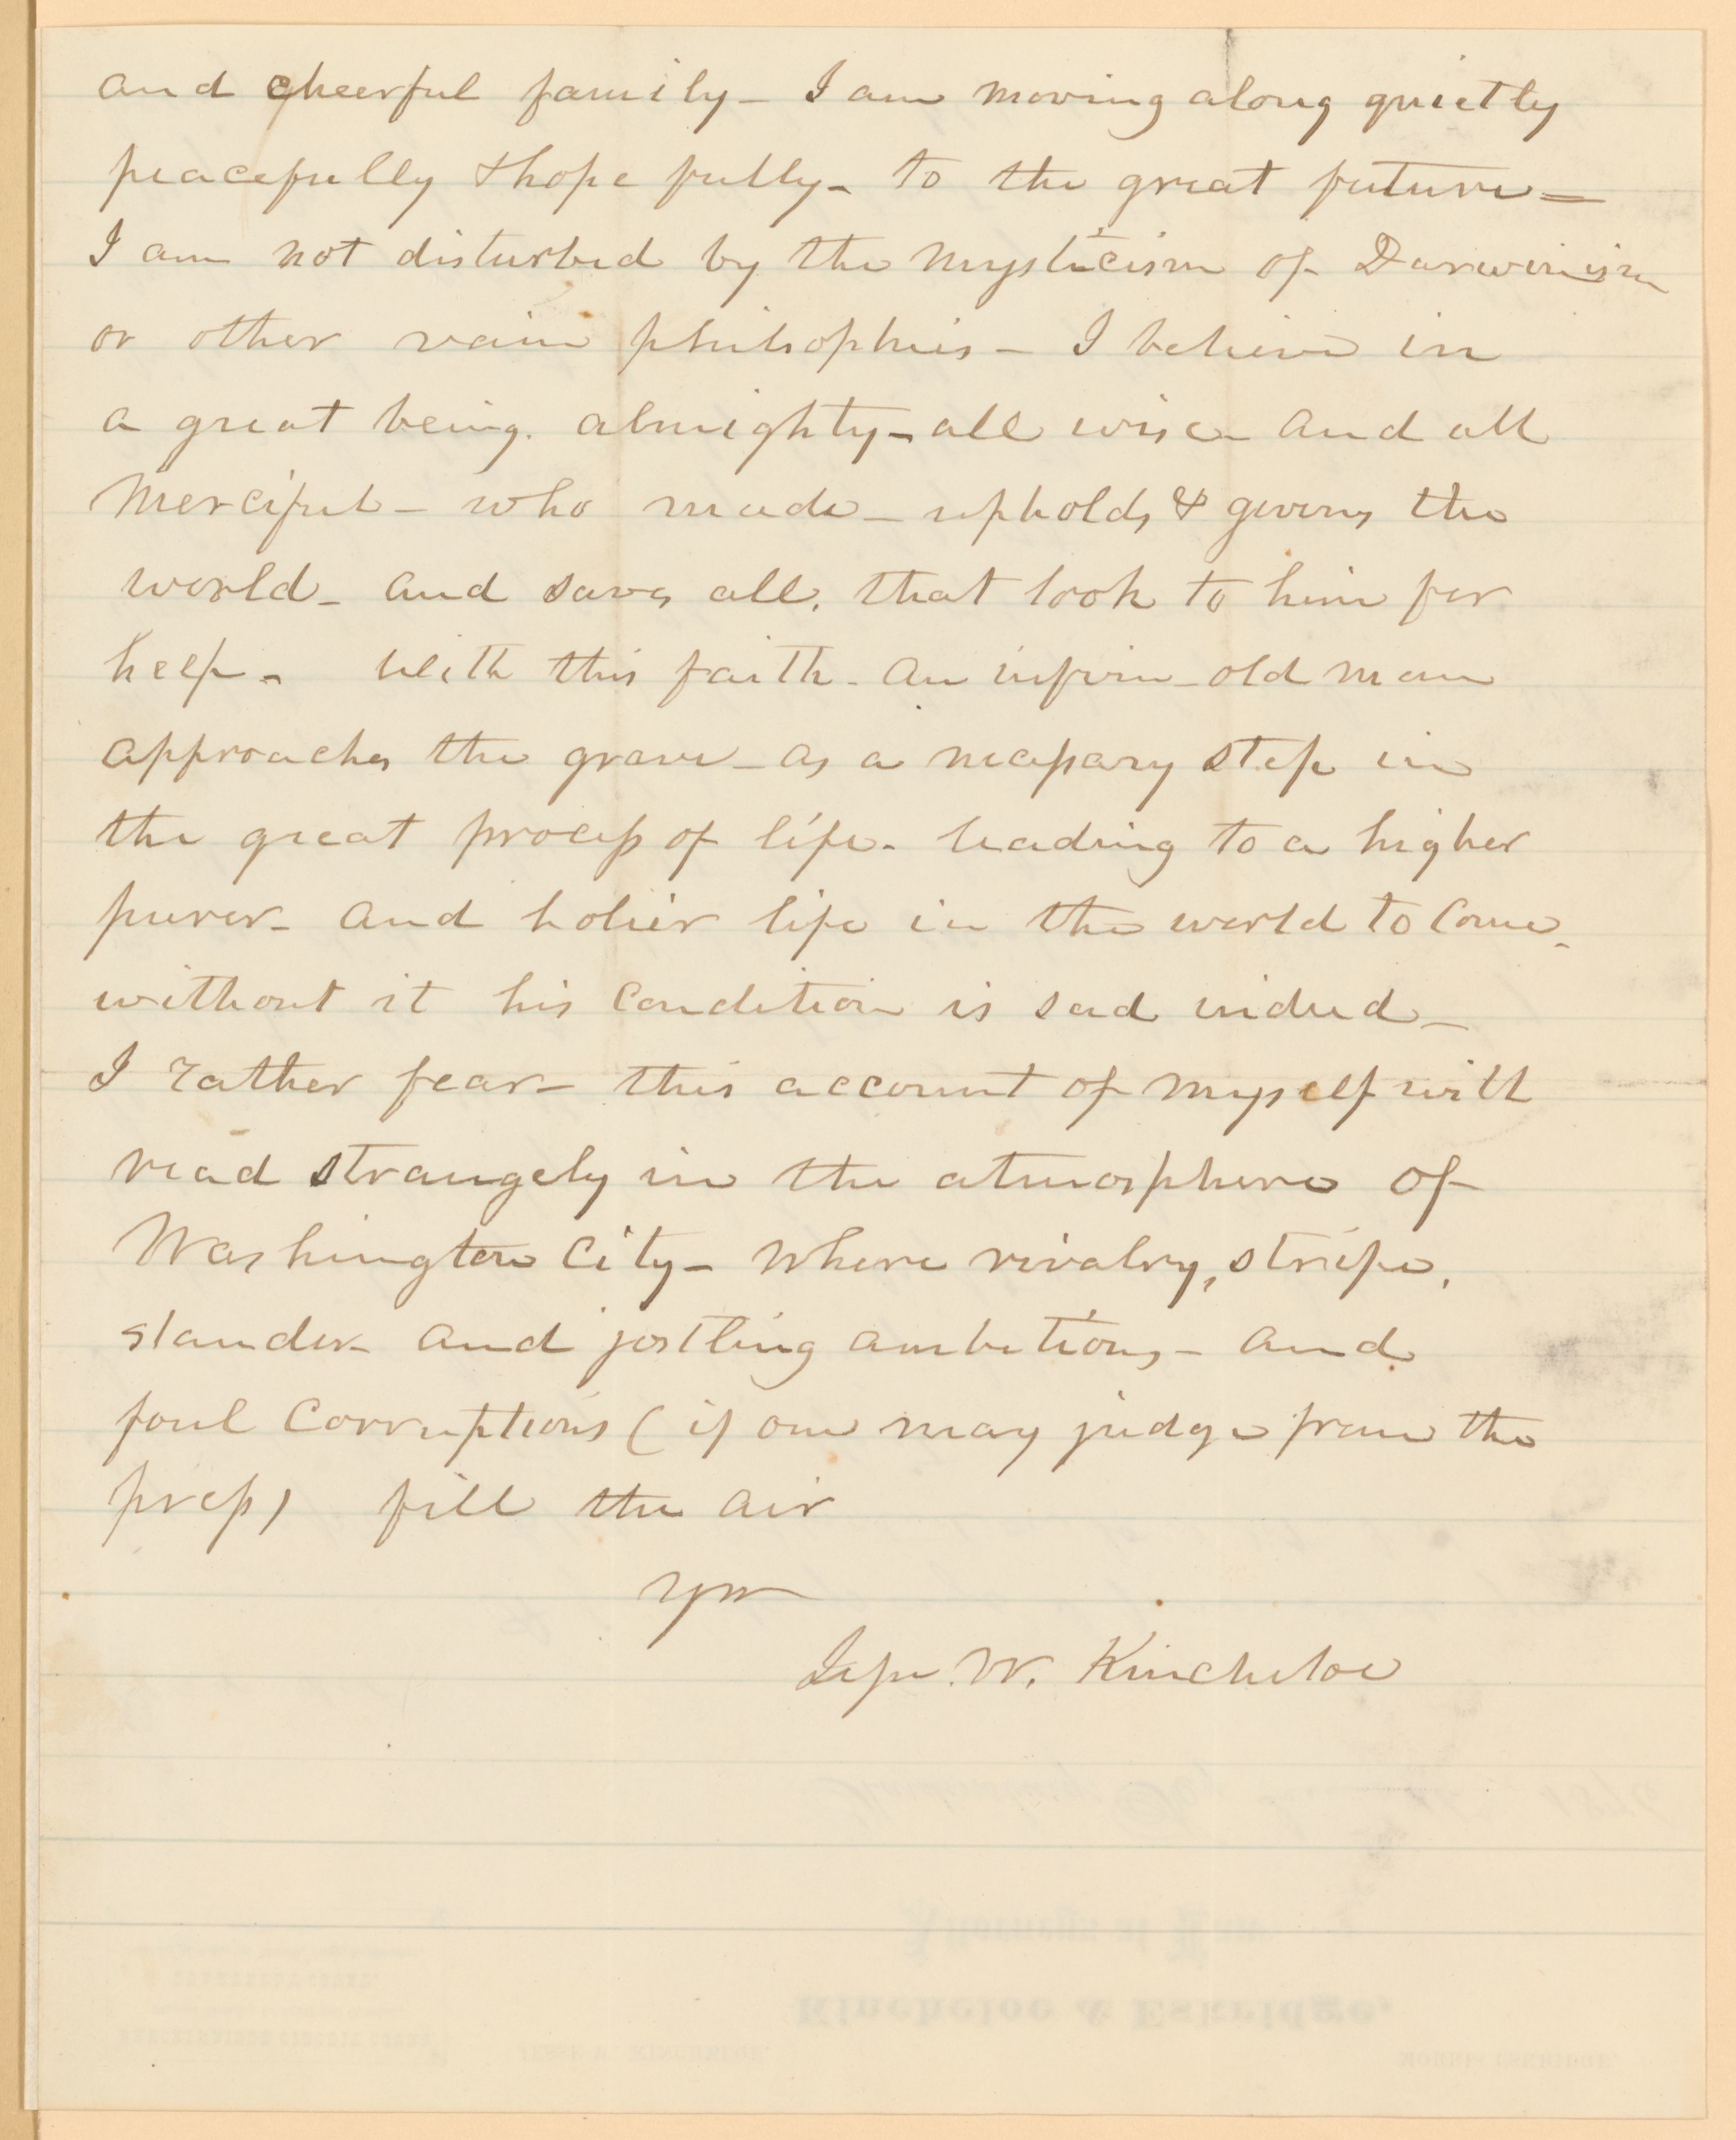 and cheerful family - I am moving along quietly
peacefully & hopefully - to the great future =
I am not disturbed by the mysticism of Darwinism
or other vain philosophies - I believe in
a great being. almighty - all wise - and all
Merciful - who made - upholds & governs the
world - and saves all, that look to him for
help - With this faith - an infirm - old man
approaches the grave - as a necessary step in
the great process of life - leading to a higher
purer - and holier life in the world to come -
without it his condition is sad indeed -
I rather fear - this account of myself will
read strangely in the atmosphere of
Washington City - where rivalry, strife,
slander - and jostling ambitions - and
foul Corruptions (if one may judge from the
press) fill the air
Yrs
Jesse W. Kincheloe
Attorneys at Law
Kincheloe & Eskridge,
JESSE W. KINCHELOE.